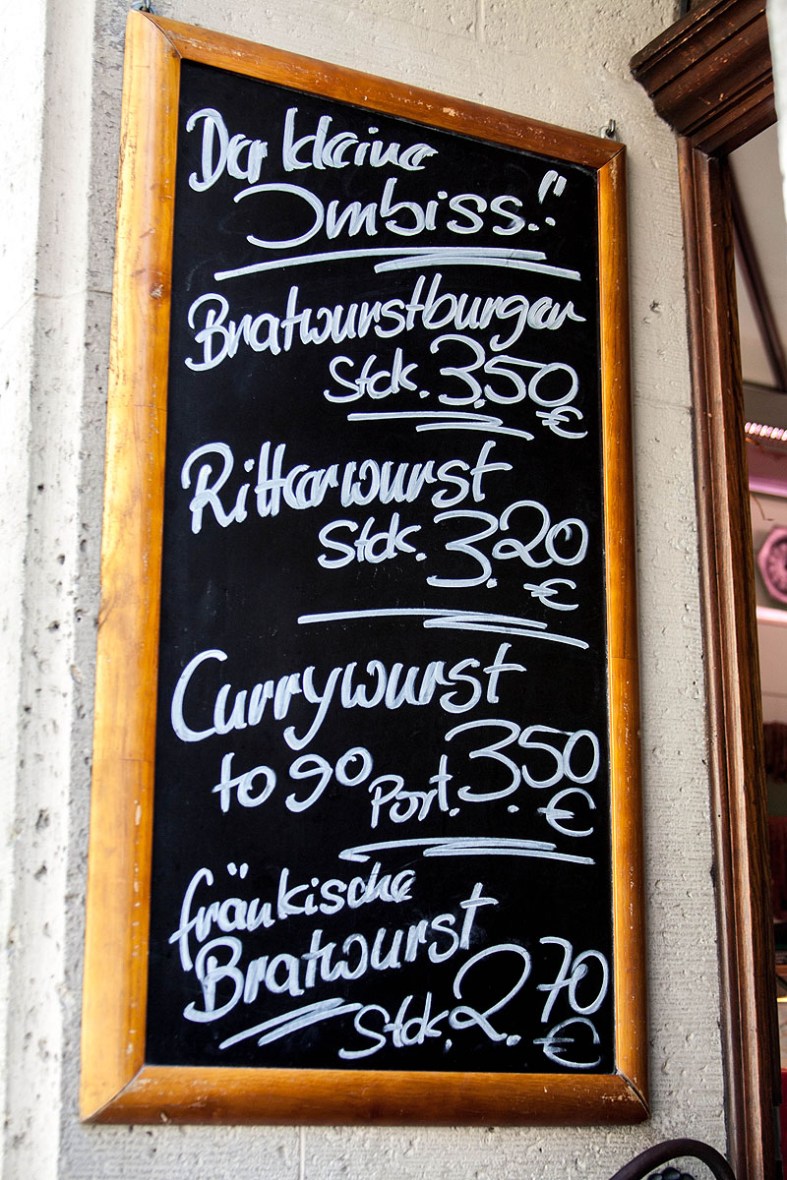 Der kleine
Imbiss."
Bratwurstburger
Stck. 3.50
€
Ritterwurst
Stck. 3.20
€
Currywurst
to go Port. 3.50
€
fränkische
Bratwurst
Stck. 2.70
€